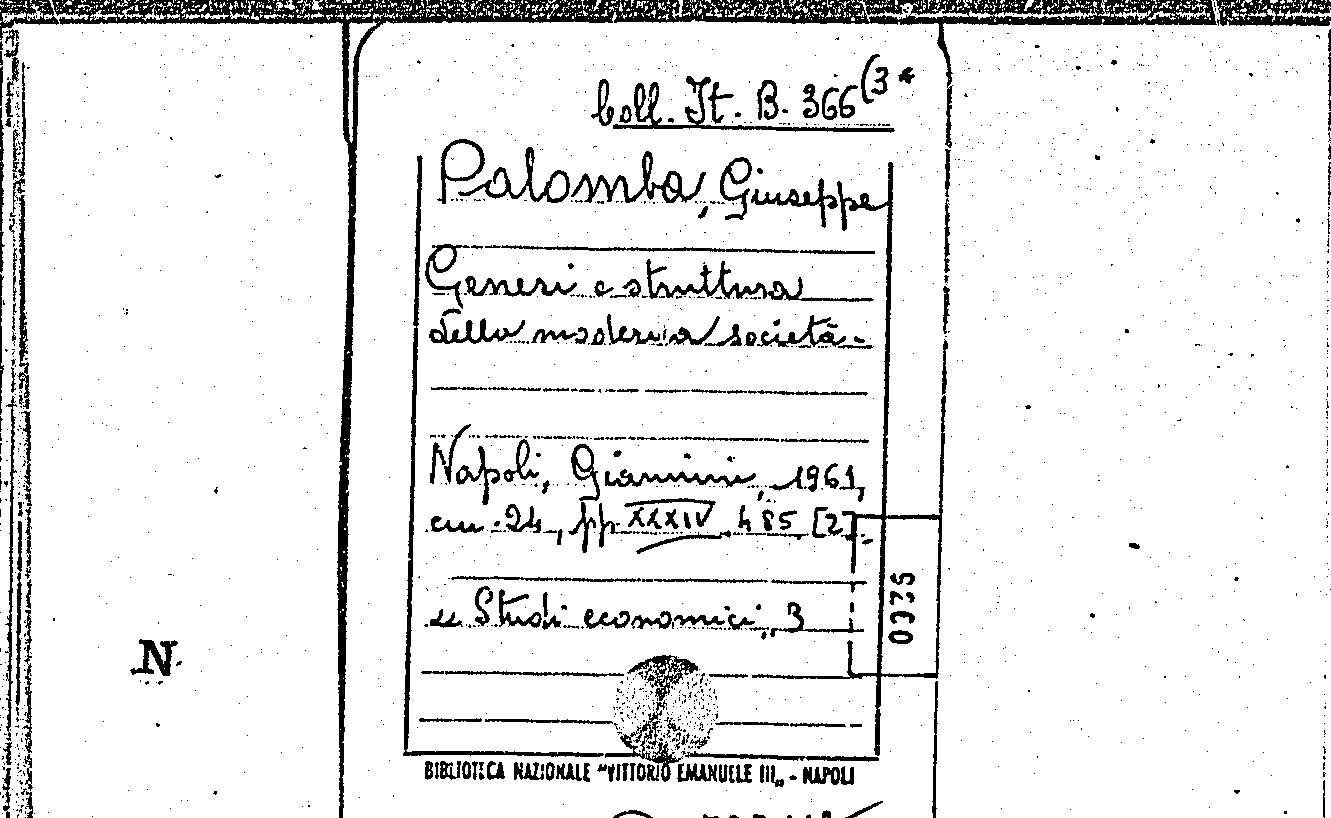 Coll. It. B. 366 (3*
Palomba, Giuseppe
Generi e struttura
della moderna società.
Napoli, Giannini, 1961,
cm. 24, pp. XXXIV, 485 [2].
„ Studi economici„ 3
N
BIBLIOTECA NAZIONALE "VITTORIO EMANUELE III„ - NAPOLI